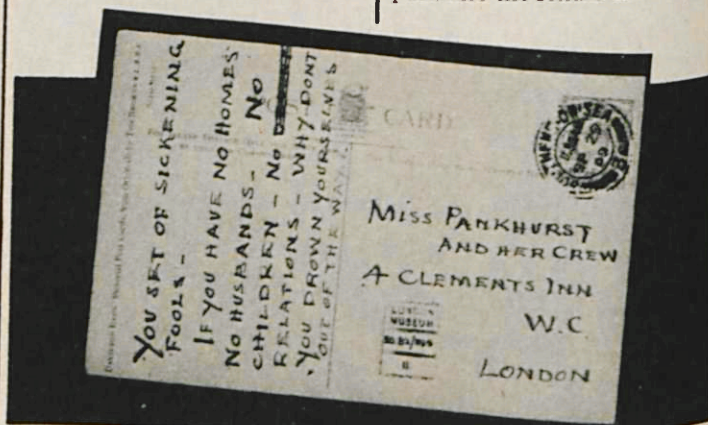 YOU SET OF SICKENING
FOOLS -
IF YOU HAVE NO HOMES
NO HUSBANDS - NO
CHILDREN - NO
RELATIONS - WHY DONT
YOU DROWN YOURSELVES
OUT OF THE WAY
CARD
MISS PANKHURST
AND HER CREW
4 CLEMENTS INN
W.C
LONDON
LONDON
MUSEUM